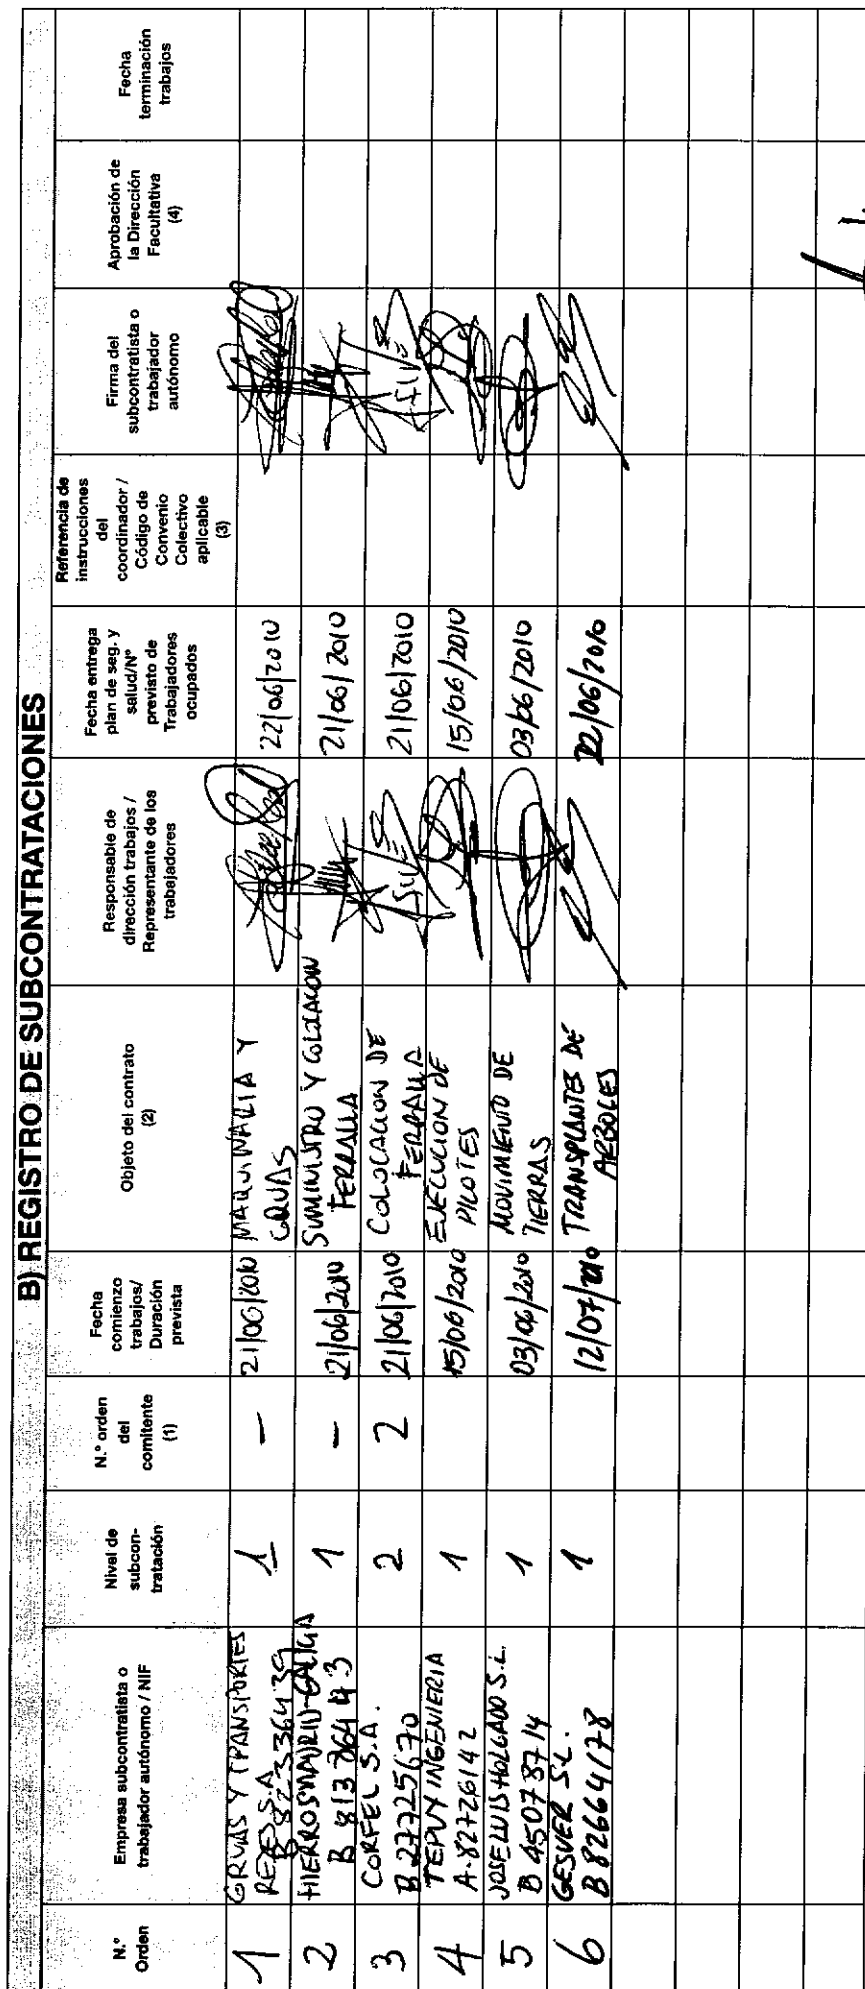 B) REGISTRO DE SUBCONTRATACIONES
N.º
Orden
Empresa subcontratista o
trabajador autónomo / NIF
Nivel de
subcon-
tratación
N.º orden
del
comitente
(1)
Fecha
comienzo
trabajos/
Duración
prevista
Objeto del contrato
(2)
Responsable de
dirección trabajos /
Representante de los
trabajadores
Fecha entrega
plan de seg. y
salud/Nº
previsto de
Trabajadores
ocupados
Referencia de
instrucciones
del
coordinador /
Código de
Convenio
Colectivo
aplicable
(3)
Firma del
subcontratista o
trabajador
autónomo
Aprobación de
la Dirección
Facultativa
(4)
Fecha
terminación
trabajos
1
GRUAS Y TRANSPORTES
REYES S.A
1
-
21/06/2010
MAQUINARIA Y
GRUAS
22/06/2010
2
HIERROS MADRID-GALICIA
1
-
21/06/2010
SUMINISTRO Y COLOCACION
FERRALLA
21/06/2010
3
CORFEL S.A.
B 27725670
2
2
21/06/2010
COLOCACION DE
FERRALLA
21/06/2010
4
TEPUY INGENIERIA
A-82726142
1
15/06/2010
EJECUCION DE
PILOTES
15/06/2010
5
JOSE LUIS HOLGADO S.L.
B 45078714
1
03/06/2010
MOVIMIENTO DE
TIERRAS
03/06/2010
6
GESVER S.L.
B 82664178
1
12/07/2010
TRANSPLANTES DE
ARBOLES
22/06/2010